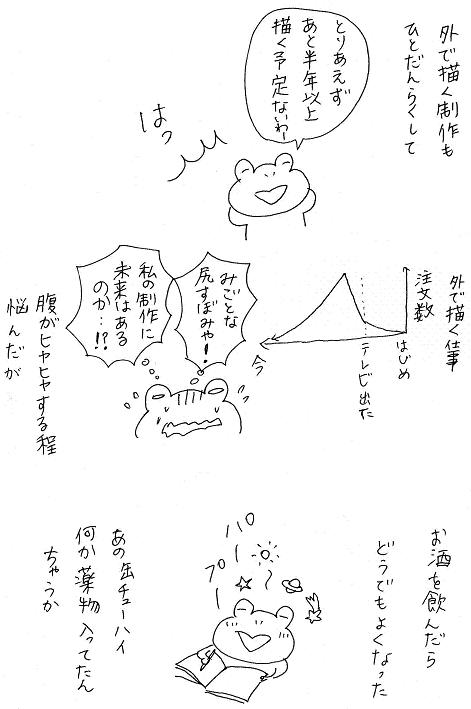 外で描く制作も
ひとだんらくして
とりあえず
あと半年以上
描く予定ないわー
はっ
外で描く仕事
注文数
はじめ
テレビ出た
今
みごとな
尻すぼみや!
私の制作に
未来はある
のか…!?
腹がヒヤヒヤする程
悩んだが
お酒を飲んだら
どうでもよくなった
パー
プー
あの缶チューハイ
何か薬物入ってたん
ちゃうか